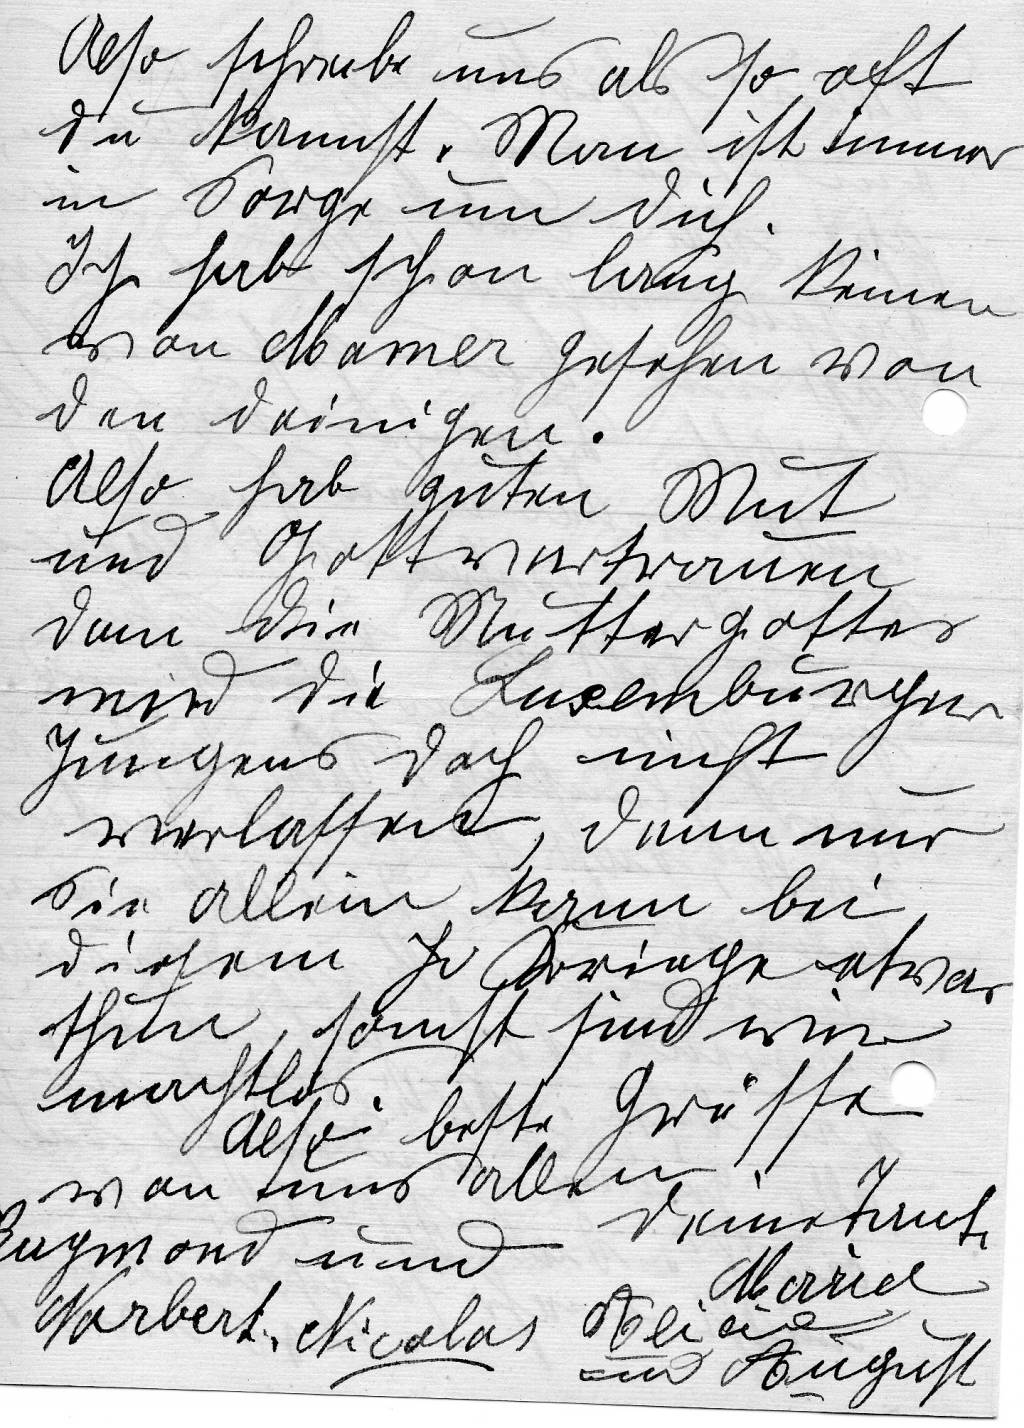 Also schreibe uns als so oft
du kannst. Man ist immer
in Sorge um dich.
Ich hab schon lang keinen
von Mamer gesehen von
den deinigen.
Also hab guten Mut
und Gottvertrauen
dann die Muttergottes
wird die Luxemburger
Jungens doch nicht
verlassen, denn nur
Sie allein kann bei
diesem Kriege etwas
thun, sonst sind wir
machtlos.
Also beste Grüsse
von uns allen
deine Tante
Raymond und Maria
Norbert. Nicolas
und August